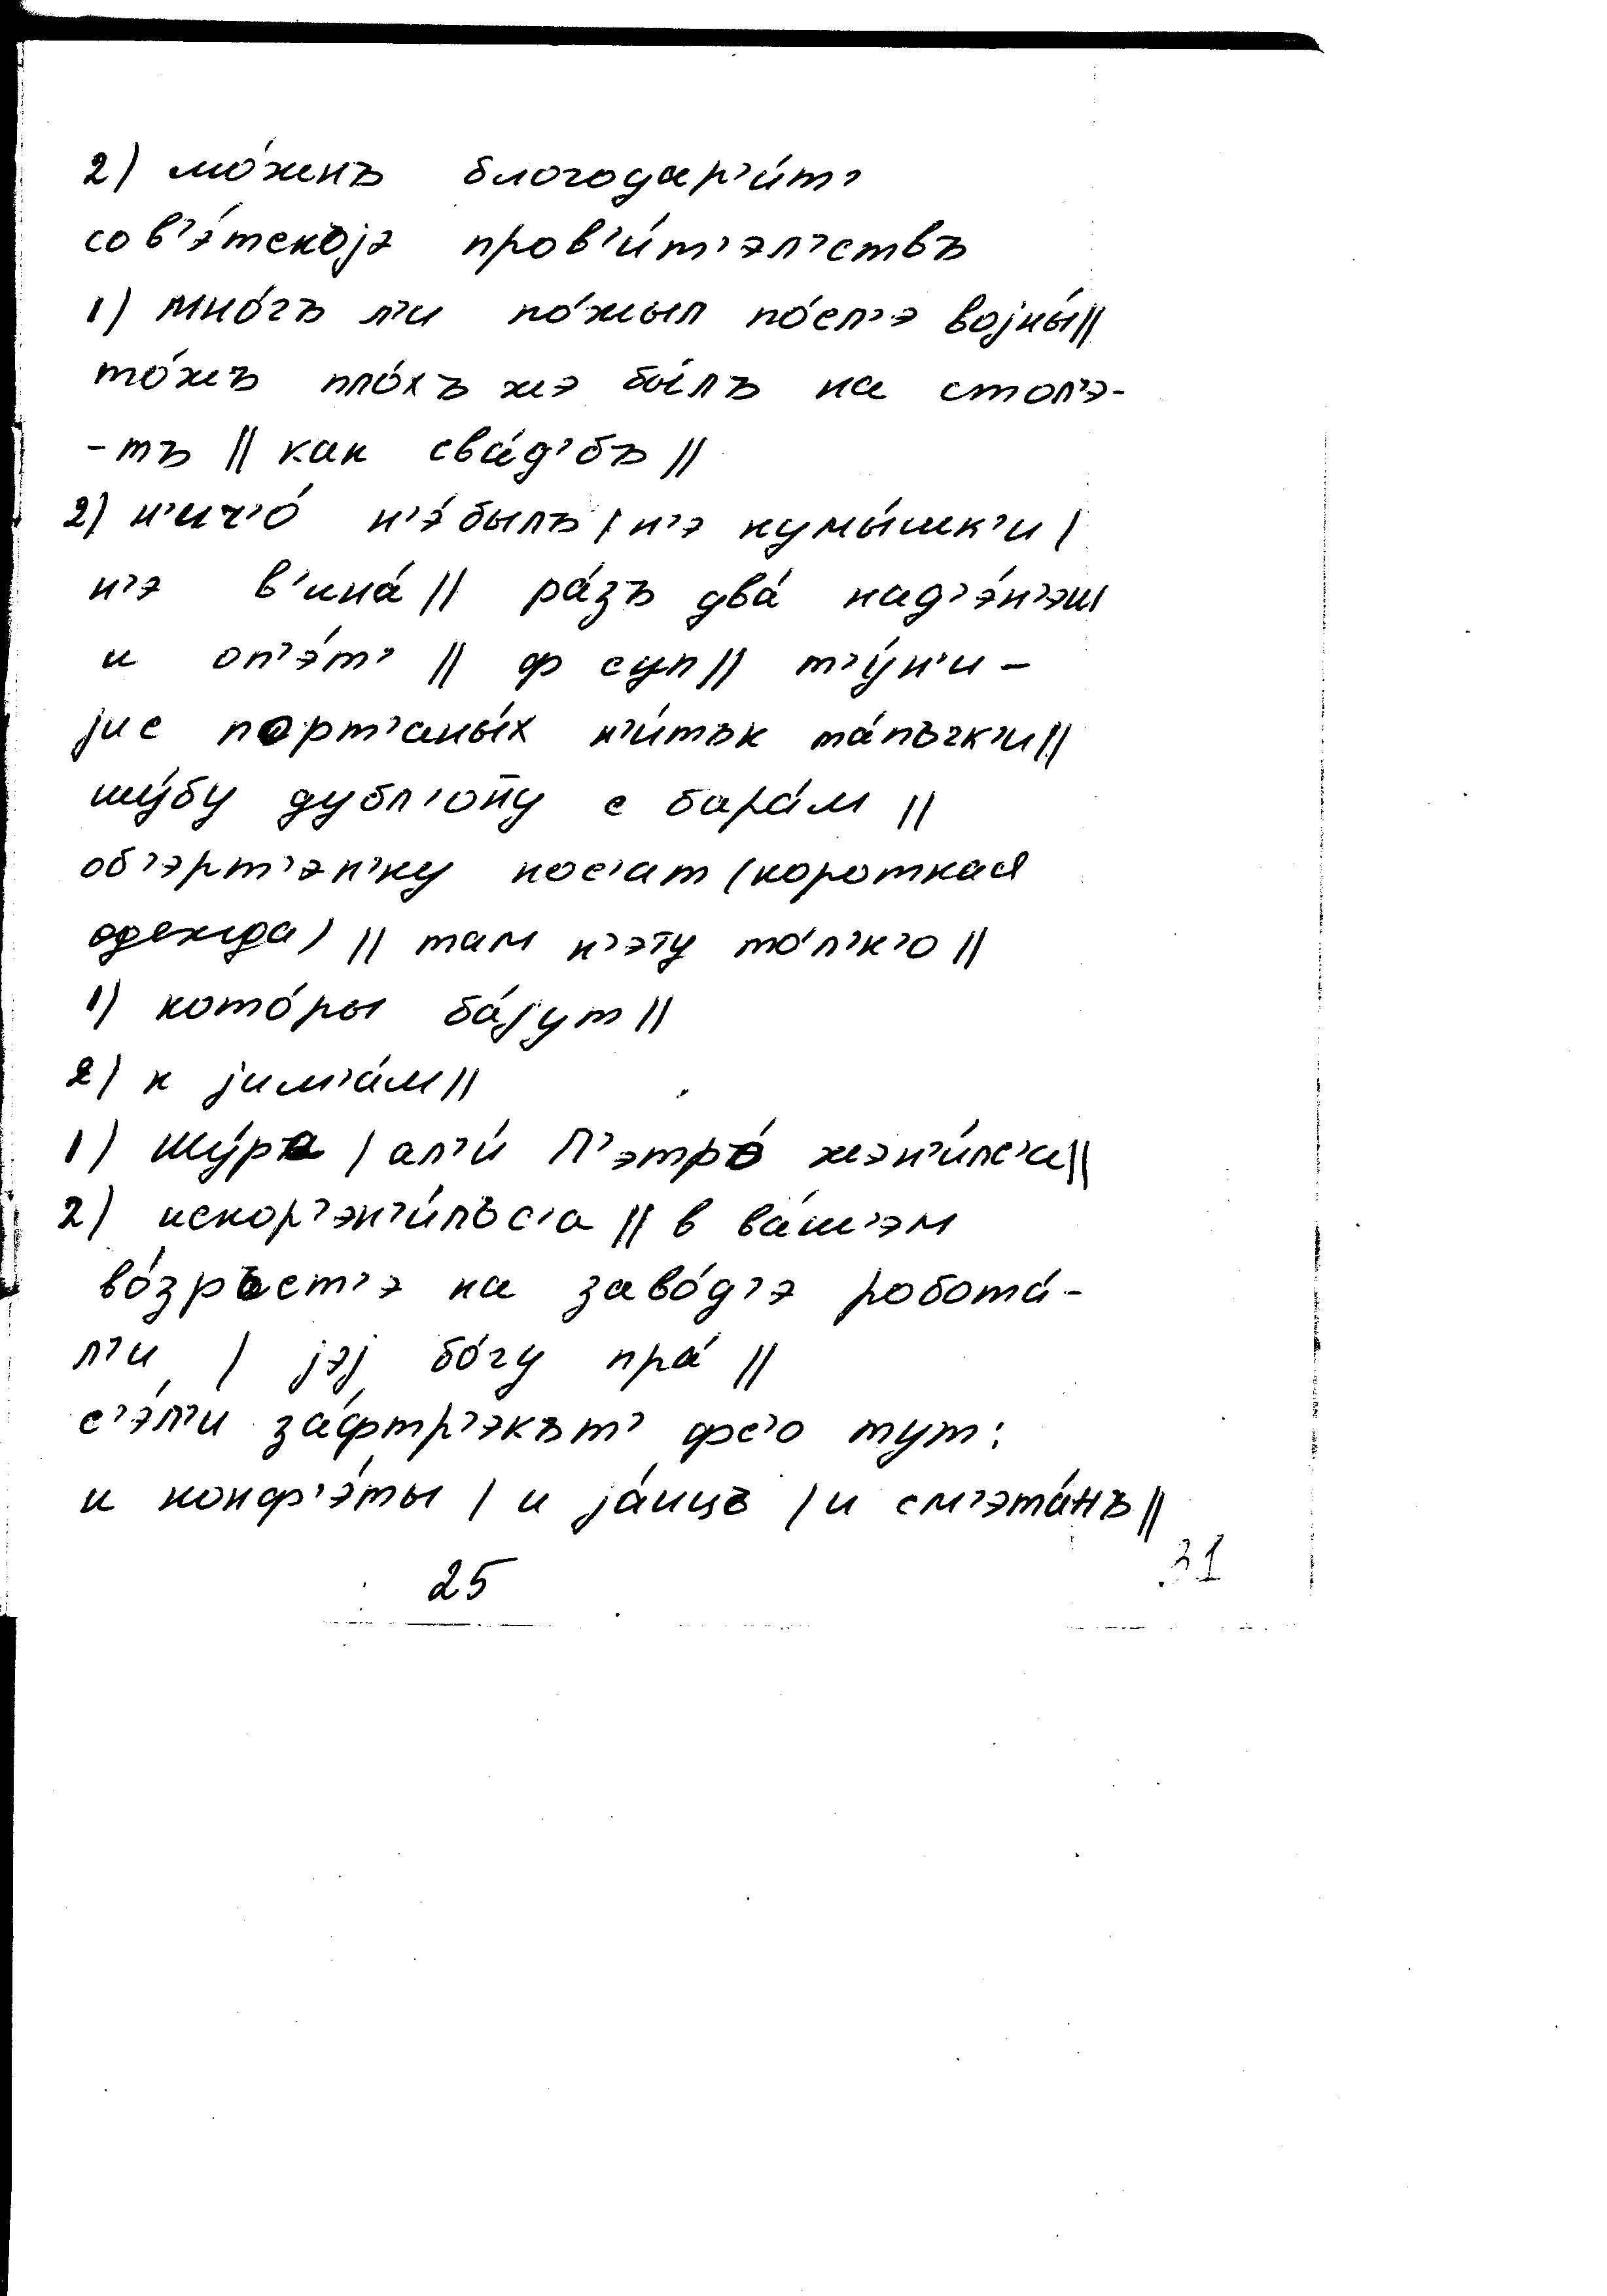 2) мо́жнъ благодар'и́т'
сов'э́тскъjэ пров'и́т'эл'ствъ
1) мно́гъ л'и по́жыл по́сл'э воjны́||
то́жъ пло́хъ жэ бы́лъ на стол'э-
-тъ || как сва́д'бъ ||
2) н'ич'о́ н'э́былъ | н'э кумы́шк'и |
н'э в'ина́ || ра́зъ два́ над'э́н'эш
и оп'э́т' || ф суп || т'у́н'и -
jис порт'аны́х н'и́тък та́пъчк'и||
шу́бу дубл'ону с бара́м ||
об'эрт'эн'ку нос'ат (короткая
одежда) || там н'эту то́л'к'о ||
1) кото́ры ба́jут ||
2) к jим'а́м ||
1) Шу́ра | ал'и́ П'этро́ жэн'и́лс'а||
2) искор'эн'и́лъс'а || в ва́ш'эм
во́зръст'э на заво́д'э робота́-
л'и | jэj бо́гу пра́ ||
с'э́л'и за́фтр'экът' фс'о тут:
и конф'э́ты | и jа́ицъ | и см'эта́нъ ||
25
31